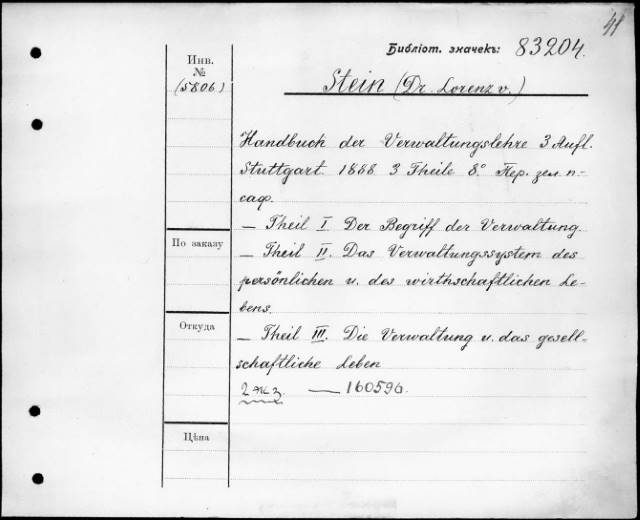 41
Библіот. значекъ: 83204.
Инв.
№
(5806)
Stein (Dr. Lorenz v.)
Handbuch der Verwaltungslehre 3 Aufl.
Stuttgart 1888 3 Theile 8° Пер. зел. п-
саф.
— Theil I Der Begriff der Verwaltung.
По заказу
— Theil II. Das Verwaltungssystem des
persönlichen u. des wirthschaftlichen Le-
bens.
Откуда
— Theil III. Die Verwaltung u. das gesell-
schaftliche Leben
2 экз. — 160596.
Цѣна